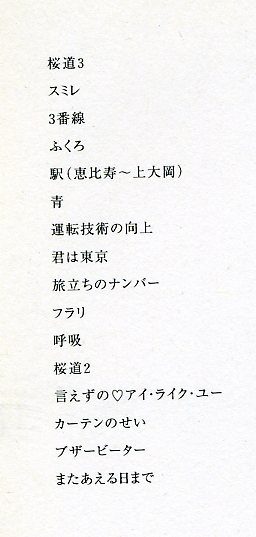 桜道3
スミレ
3番線
ふくろ
駅（恵比寿～上大岡）
青
運転技術の向上
君は東京
旅立ちのナンバー
フラリ
呼吸
桜道2
言えずの♡アイ・ライク・ユー
カーテンのせい
ブザービーター
またあえる日まで